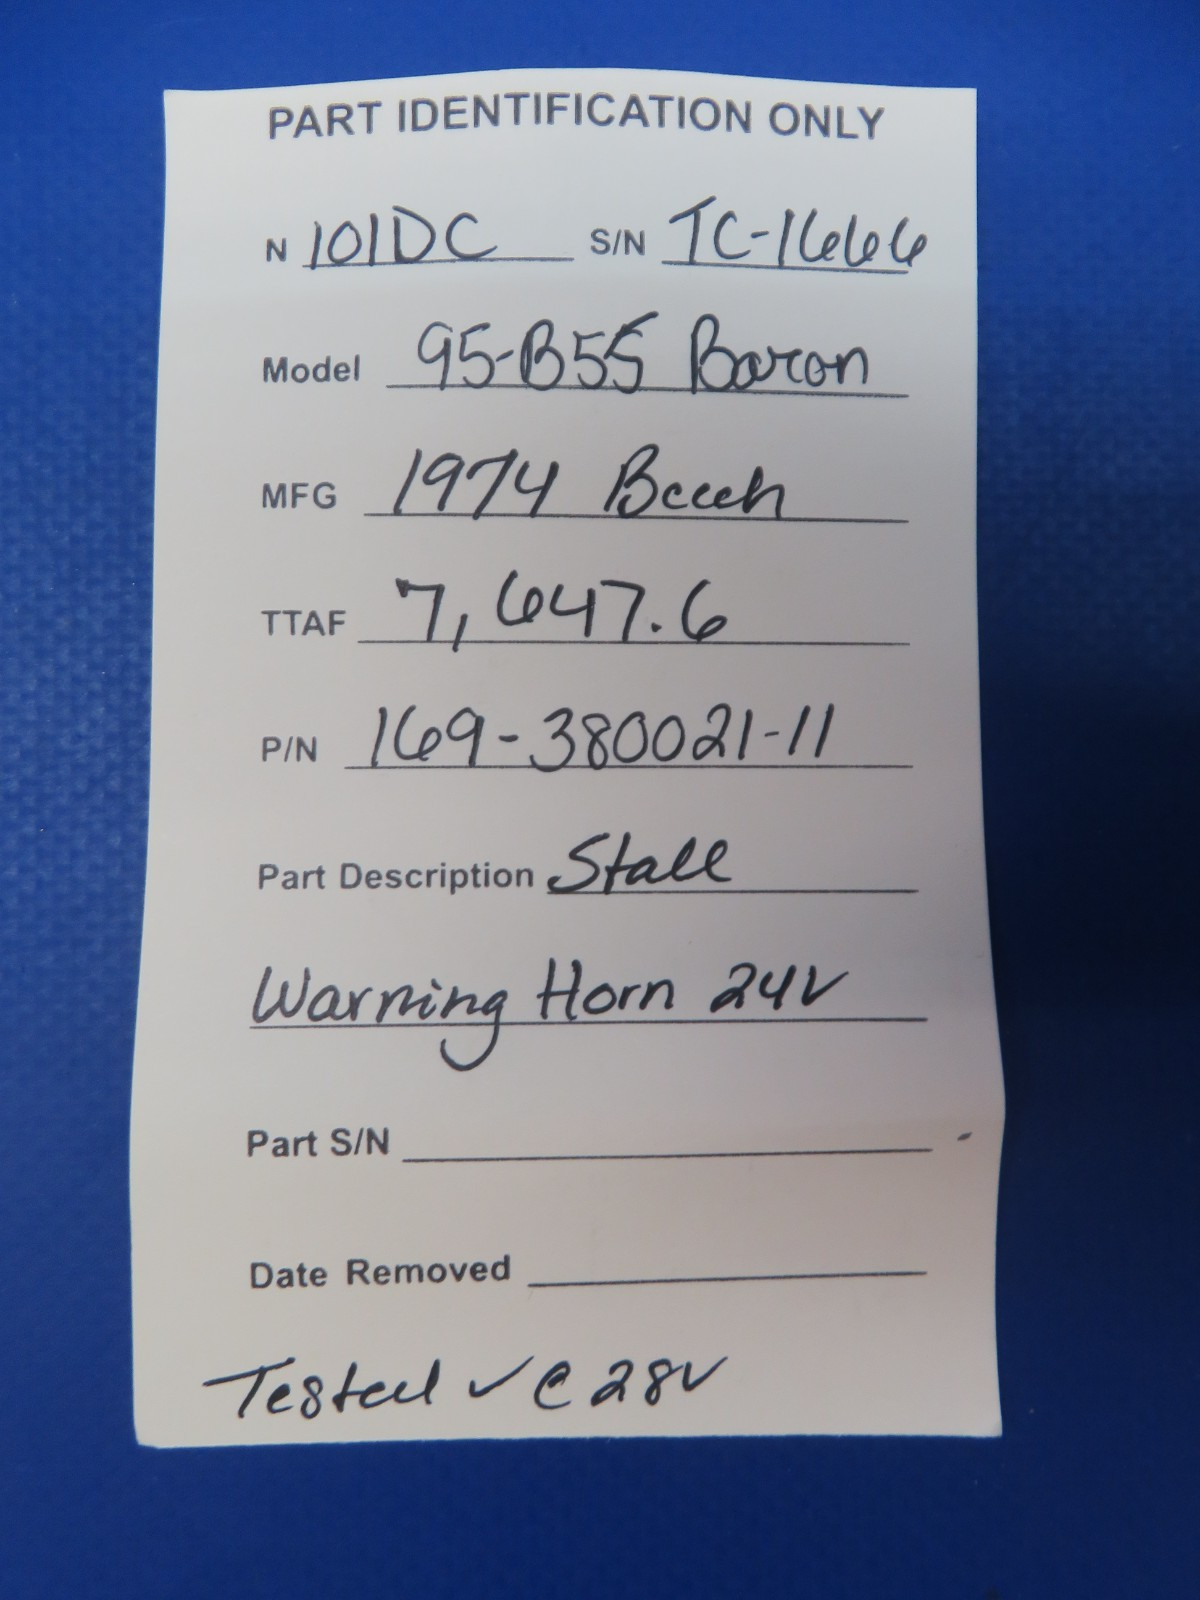 PART IDENTIFICATION ONLY
N 101DC S/N TC-1666
Model 95-B55 Baron
MFG 1974 Beech
TTAF 7,647.6
P/N 169-380021-11
Part Description Stall
Warning Horn 24V
Part S/N
Date Removed
Tested ✓ @ 28V